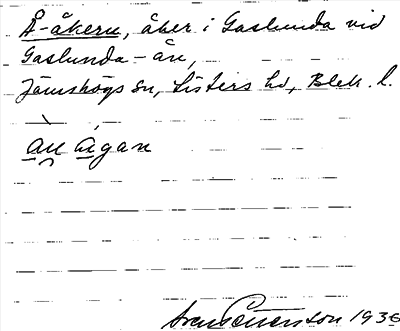 Å-åkern, åker i Gaslunda vid
Gaslunda-ån,
Jämshögs sn, Listers hd, Blek. l.
au ägan
1936